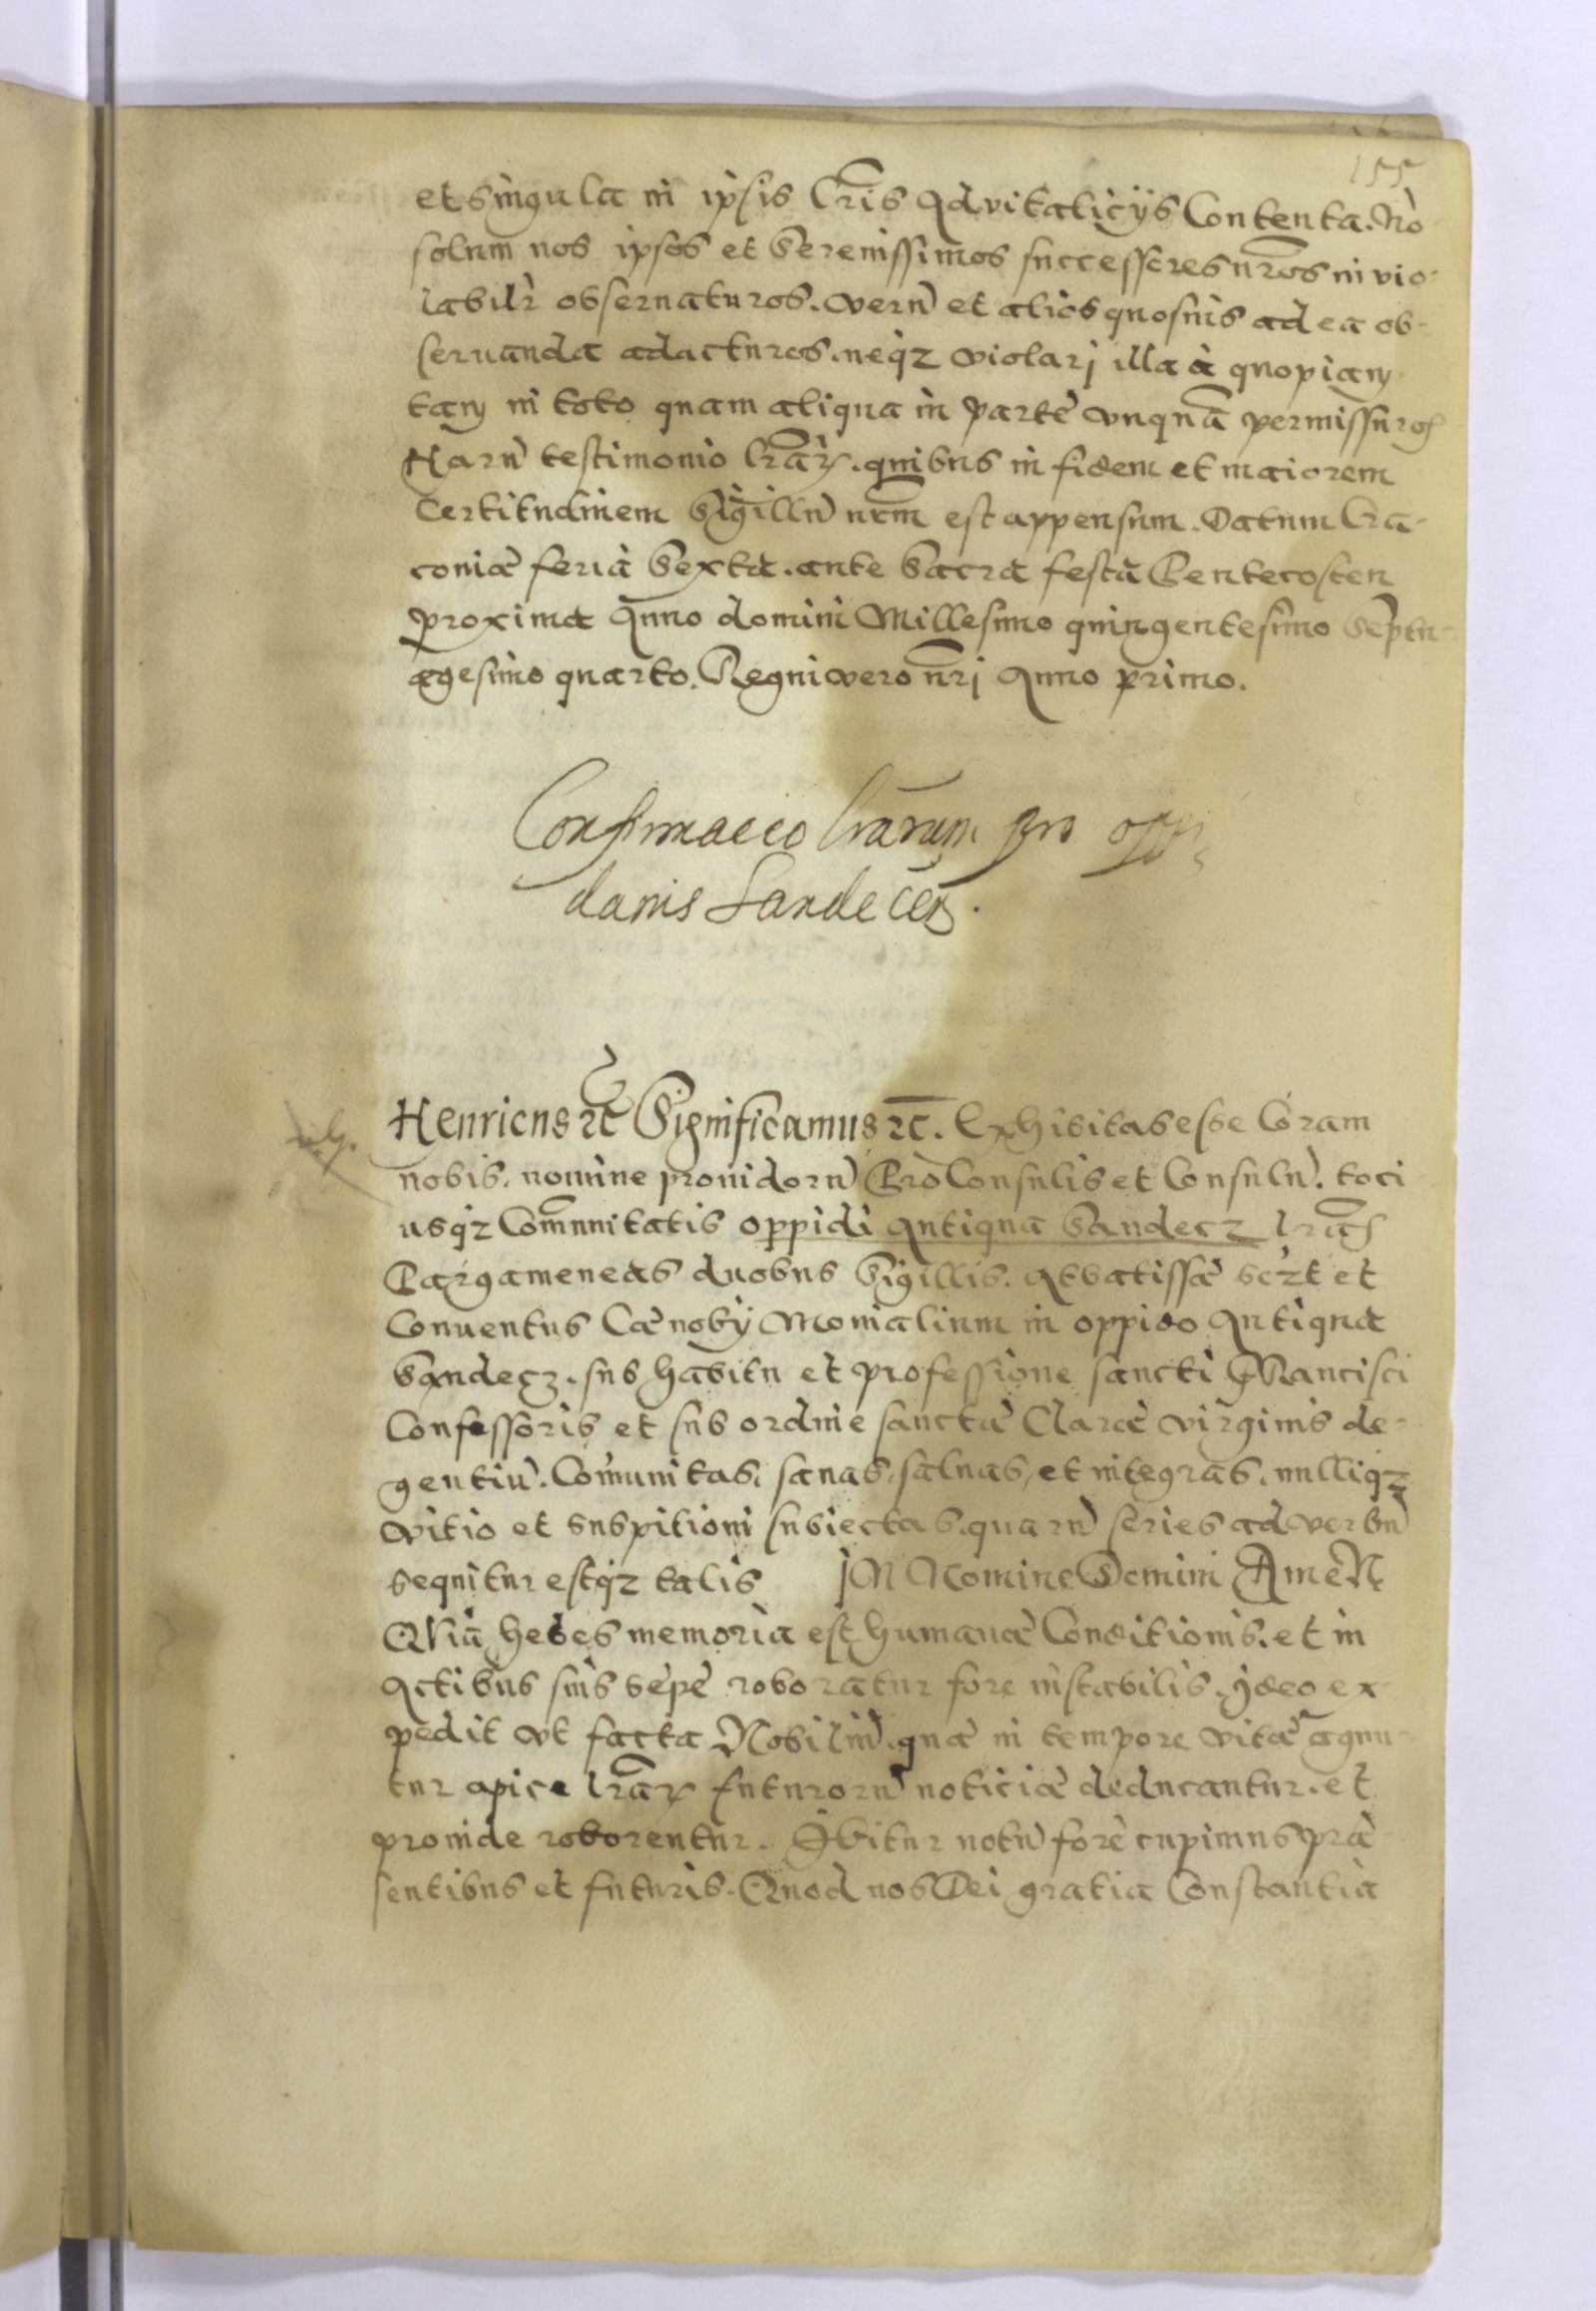 155
et singula in ipsis lr̃is Aduitalicÿs Contenta. Nò
solum nos ipsos et Serenissimos successores nr̃os in vio-
labilr̀ obseruaturos. verũ et alios quosuis ad ea ob-
seruanda adacturos. neqз violarj illa à quopiam
tam in toto quam aliqua in parte vnquã permissuros
Harũ testimonio lr̃aꝝ. quibus in fidem et maiorem
Certitudinem Sigillũ nr̃m est appensum. Datum Cra-
couiæ feria Sexta. ante Sacra festa Pentecosten
proxima Anno domini Millesimo quingentesimo Septu-
agesimo quarto. Regni vero nr̃j Anno primo.
Confirmacio lr̃arum pro oppi
danis Sandecẽn.
Henricus ꝛc̃ Significamus ꝛc̃. Exhibitas esse Coram
nobis. nomine prouidorũ ProConsulis et Consulũ. toci
usqз Com̃unitatis oppidi Antiqua Sandecz lr̃as
Pargameneas duobus Sigillis. Abbatissæ sczt et
Conuentus Cænobÿ Monialium in oppido Antiqua
Sandecz. sub habitu et professione sancti Francisci
Confessoris et sub ordine sanctæ Claræ virginis de-
gentiũ. Com̃unitas. sanas. saluas, et integras. nulliqз
vitio et suspitioni subiectas. quarũ series ad verbũ
sequitur estqз talis IN Nomine Domini AmeN
QVia hebes memoria est humanæ Conditionis. et in
Actibus suis sepe roboratur fore instabilis. ideo ex
pedit vt facta Nobiliũ. quæ in tempore vitæ agun-
tur apice lr̃aꝝ futurorũ noticiæ deducantur. et
proinde roborentur. Igitur notũ fore cupimus præ
sentibus et futuris. Quod nos Dei gratia Constantia